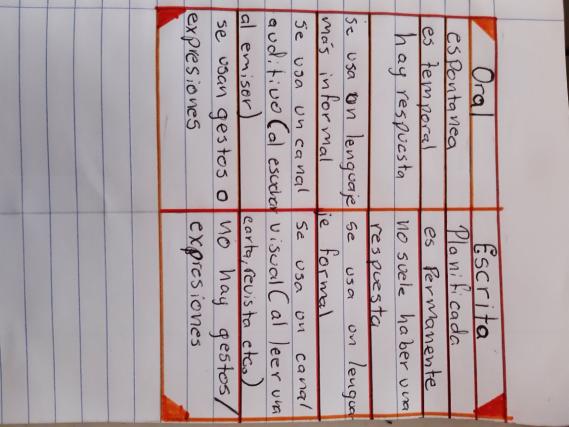 Oral
Escrita
espontanea
Planificada
es temporal
es Permanente
hay respuesta
no suele haber una
respuesta
se usa un lenguaje
más informal
se usa un lengua
je formal
se usa un canal
auditivo (al escuchar
al emisor)
se usa un canal
visual (al leer una
carta, revista etc.)
se usan gestos o
expresiones
no hay gestos/
expresiones